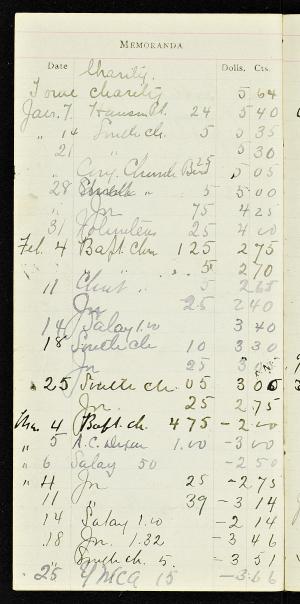 MEMORANDA
Date Dolls. Cts.
Charity.
I owe charity 5 64
Jan. 7. 24 5 40
" 14 Smith ch. 5 5 35
21 " 5 30
" Cong. Church 25 5 05
28 " 5 5 00
" Jr 75 4 25
31 Volunteers 25 4 00
Feb. 4 Bapt. Chu 1 25 2 75
" " 5 2 70
11 " 5 2 65
Jr 25 2 40
14 Salary 1.00 3 40
18 Smith ch 10 3 30
Jr 25 3
25 Smith ch. 05 3 00
Jr. 25 2 75
Mar. 4 Bapt. ch. 4 75 - 2 00
" 5 A. C. Dixon 1.00 - 3 00
" 6 Salary 50 - 2 50
" 4 Jr 25 - 2 75
11 " 39 - 3 14
14 Salary 1.00 - 2 14
.18 Jr. 1.32 - 3 46
Smith ch. 5 - 3 51
" 25 YMCA 15 - 3 66